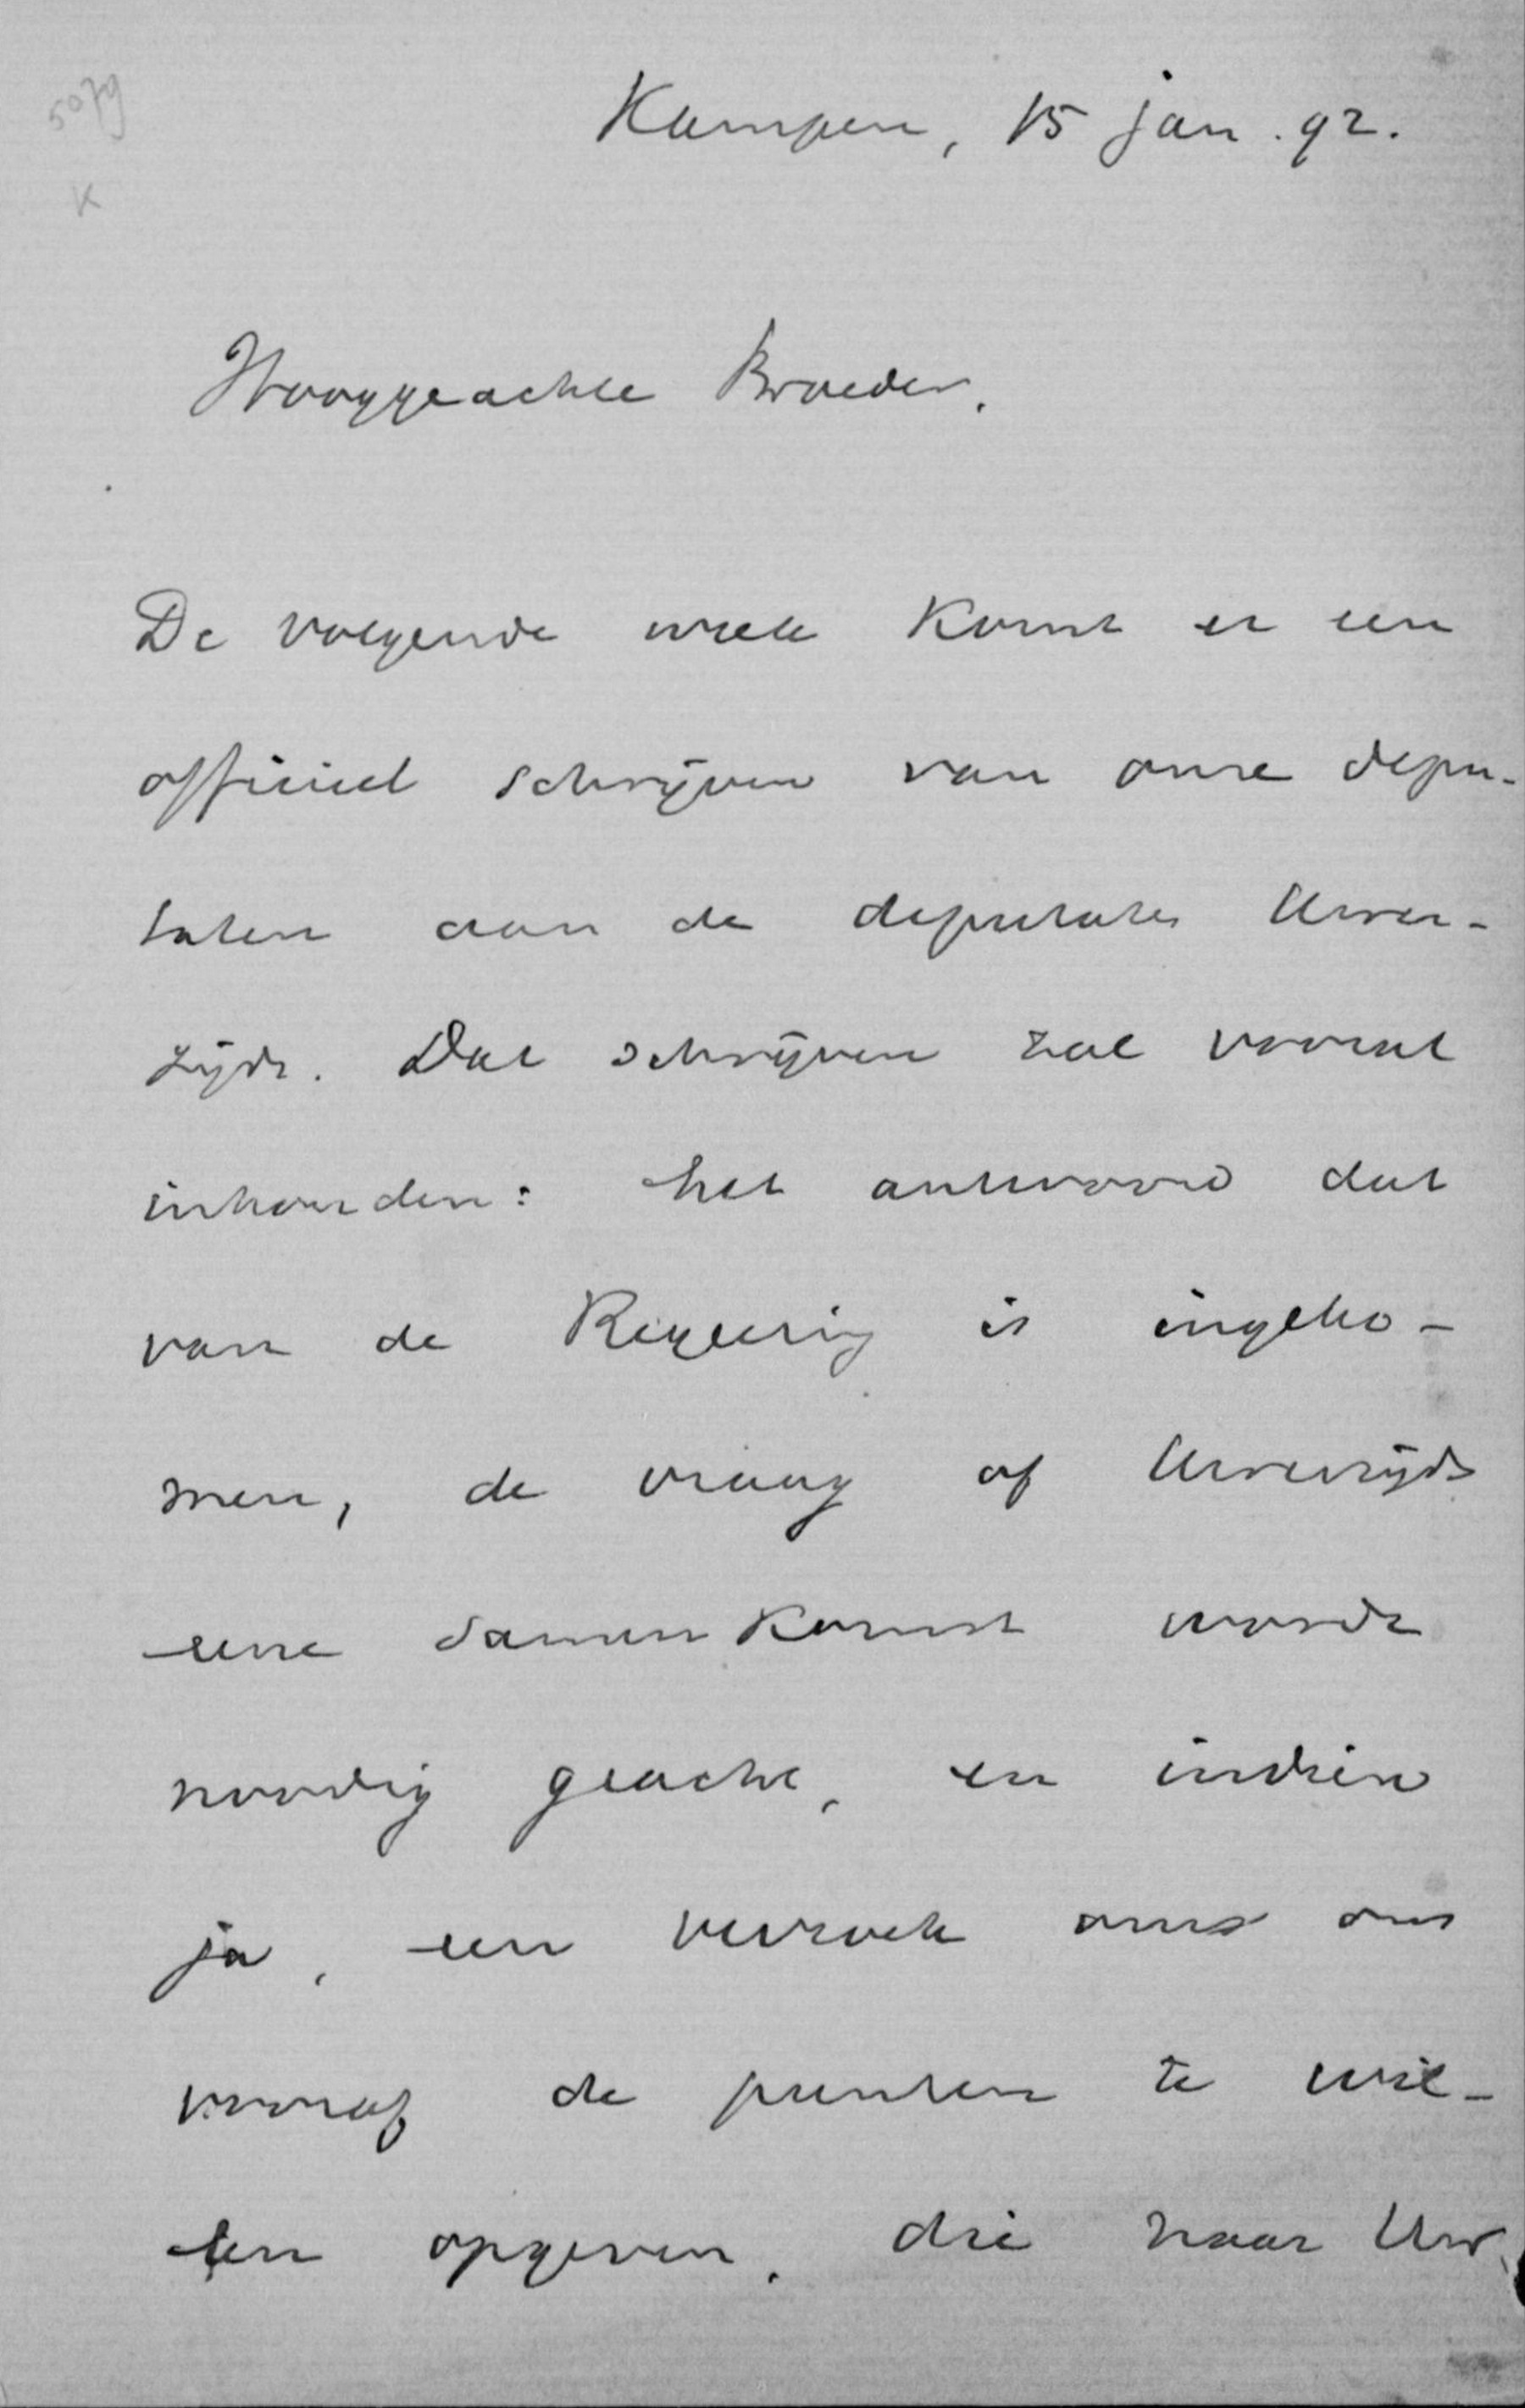 5079
K
Kampen, 15 jan. 92.
Hooggeachte Broeder.
De volgende week komt er een
officieel schrijven van onze depu-
taten aan de deputaten Uwer-
zijds. Dat schrijven zal vooral
inhouden: het antwoord dat
van de Regeering is ingeko-
men, de vraag of Uwerzijds
eene samenkomst wordt
noodig geacht, en indien
ja, een verzoek om ons
vooraf de punten te wil-
len opgeven, die naar Uw